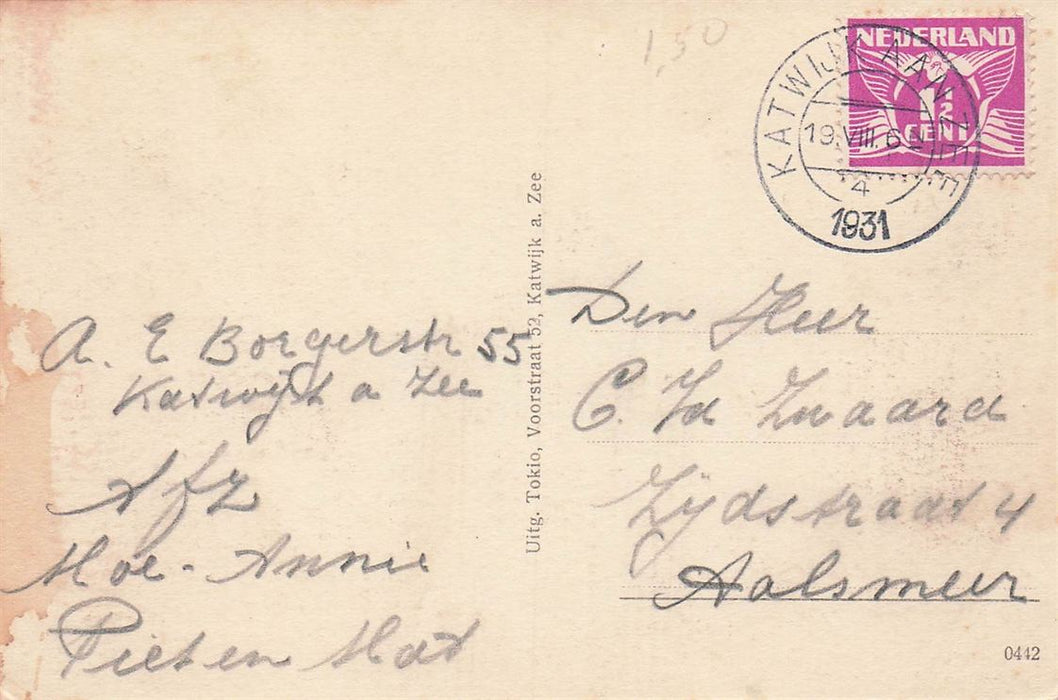 1,50
NEDERLAND
1½
CENT
KATWIJK AAN ZEE
19.VIII.6
4
1931
A. E Borgerstr 55
Katwijk a Zee
Afz
Moe - Annie
Piet en Mat
Uitg. Tokio, Voorstraat 52, Katwijk a. Zee
Den Heer
C. Zwaard
Zijdstraat 4
Aalsmeer
0442